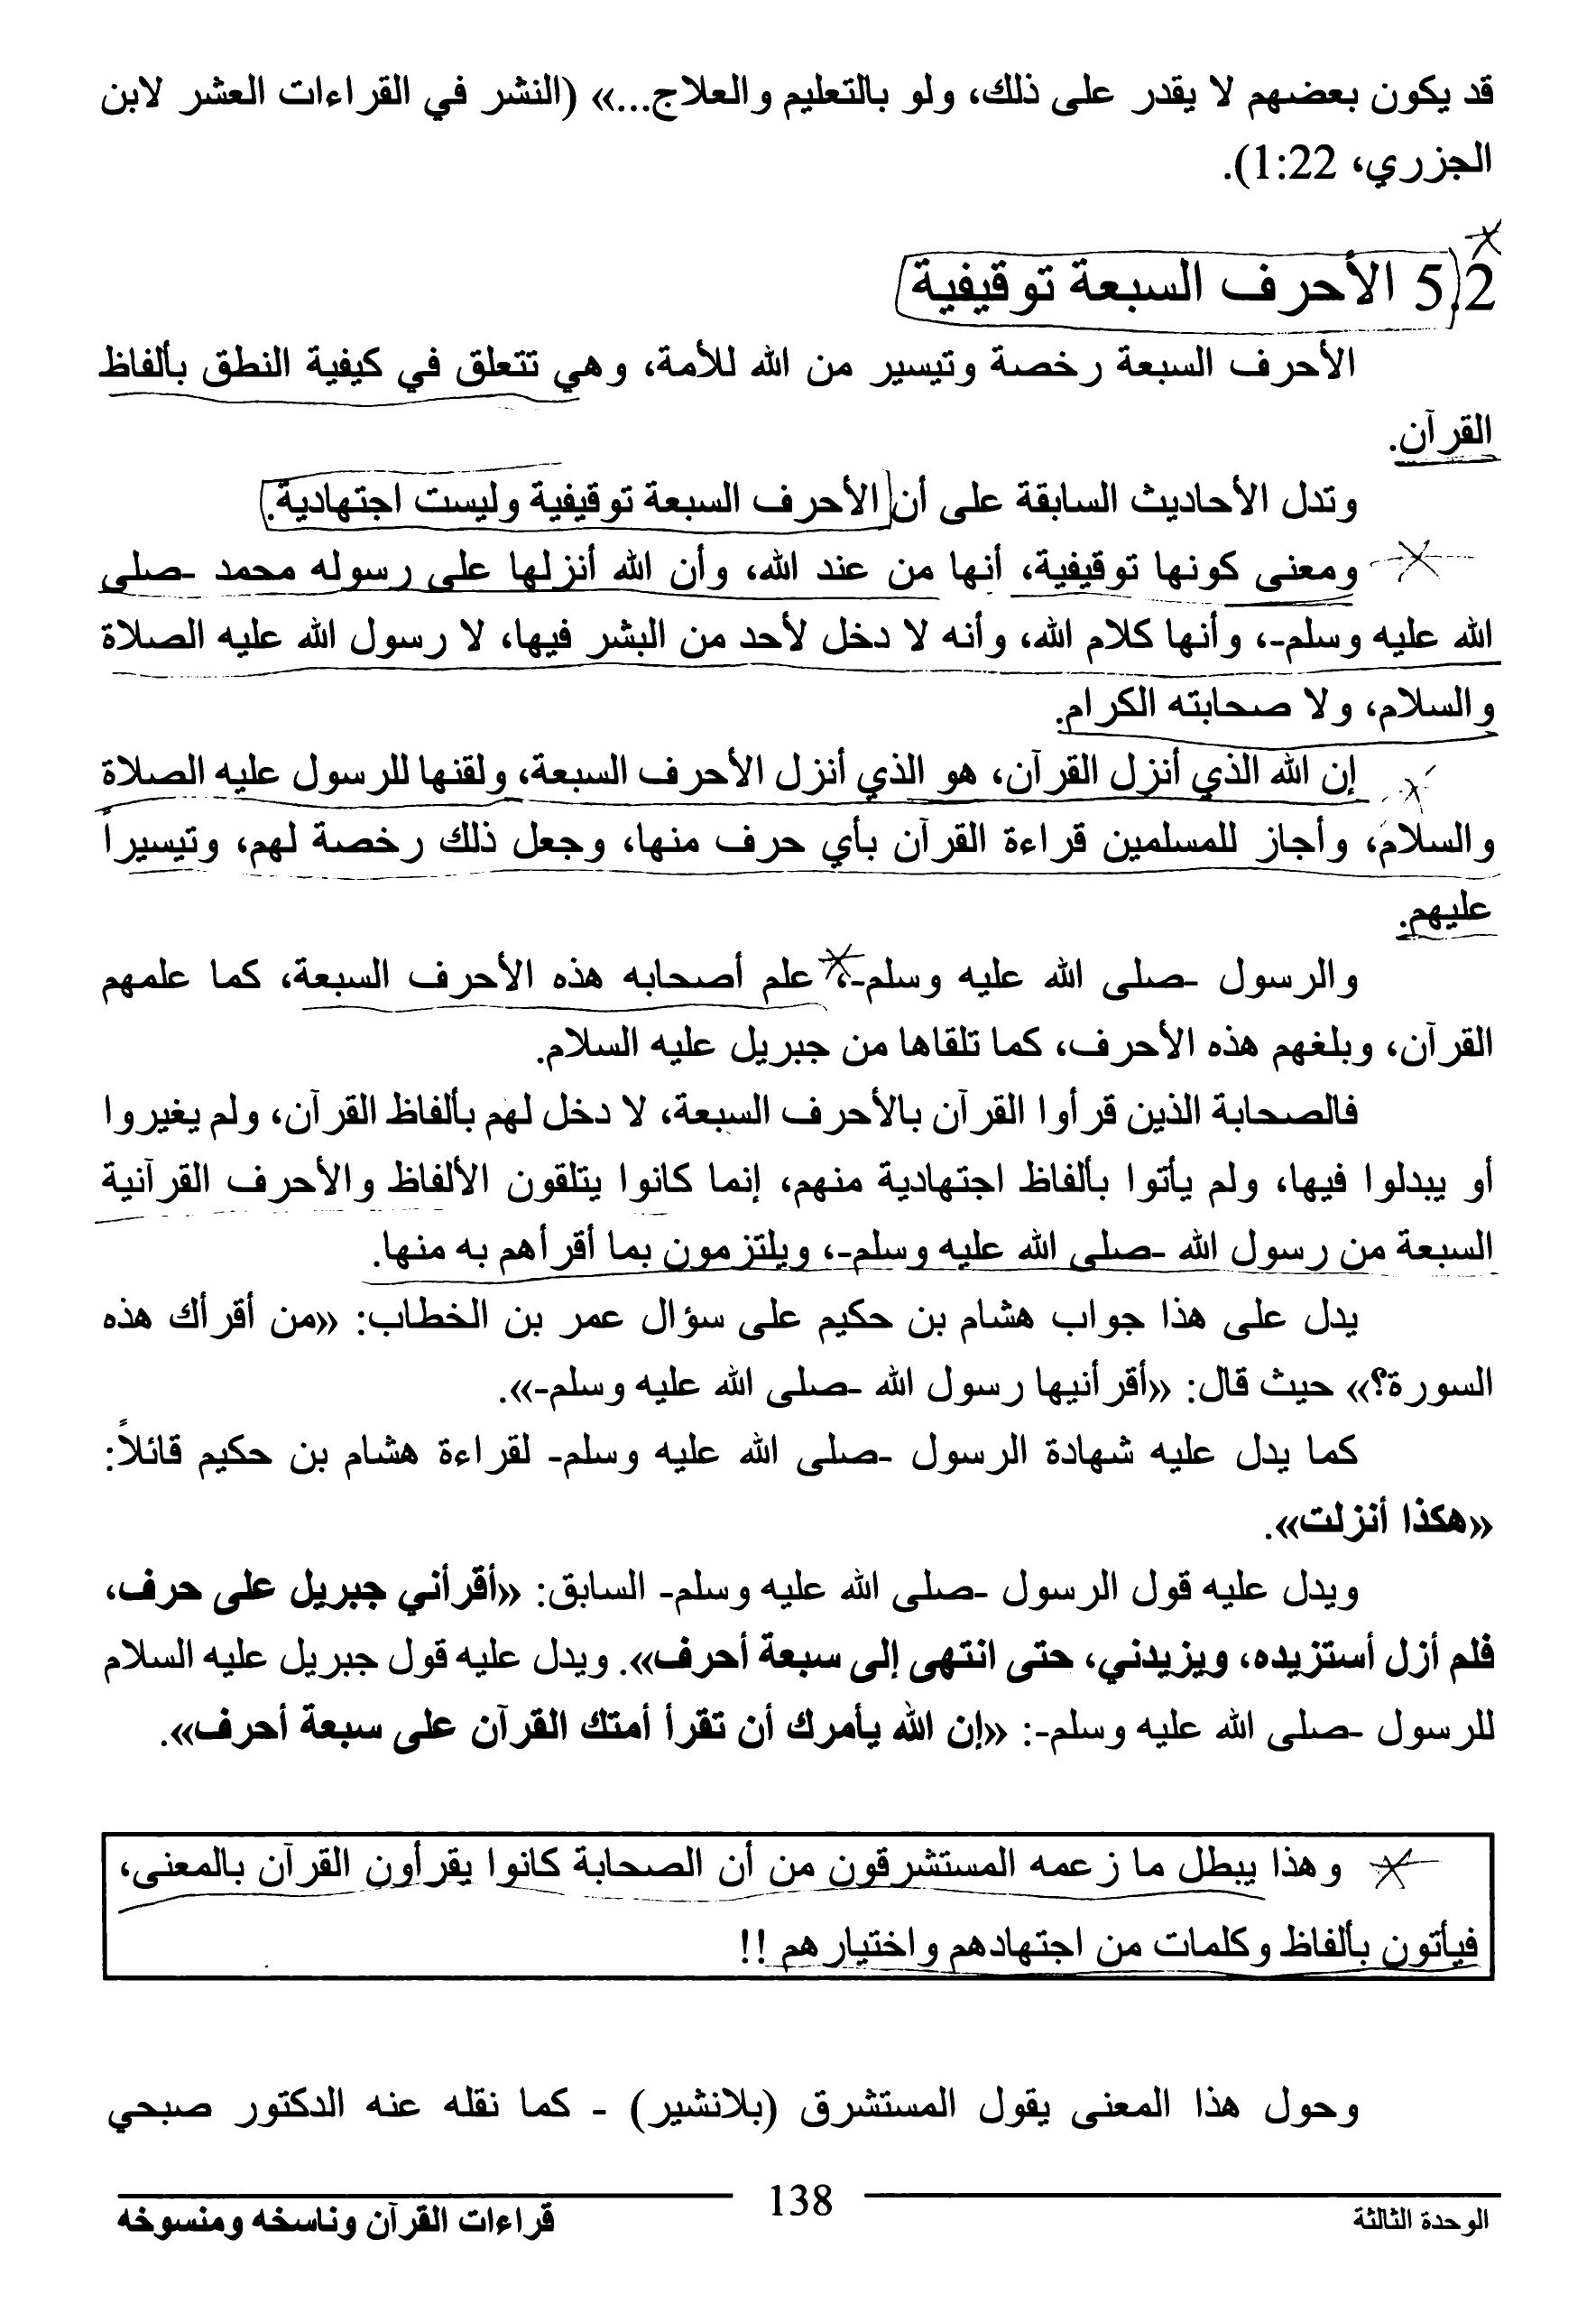 قد يكون بعضهم لا يقدر على ذلك، ولو بالتعليم والعلاج...» (النشر في القراءات العشر لابن
الجزري، 1:22).
5.2 الأحرف السبعة توقيفية
الأحرف السبعة رخصة وتيسير من الله للأمة، وهي تتعلق في كيفية النطق بألفاظ
القرآن.
وتدل الأحاديث السابقة على أن الأحرف السبعة توقيفية وليست اجتهادية.
ومعنى كونها توقيفية، أنها من عند الله، وأن الله أنزلها على رسوله محمد -صلى
الله عليه وسلم-، وأنها كلام الله، وأنه لا دخل لأحد من البشر فيها، لا رسول الله عليه الصلاة
والسلام، ولا صحابته الكرام.
إن الله الذي أنزل القرآن، هو الذي أنزل الأحرف السبعة، ولقنها للرسول عليه الصلاة
والسلام، وأجاز للمسلمين قراءة القرآن بأي حرف منها، وجعل ذلك رخصة لهم، وتيسيراً
عليهم.
والرسول -صلى الله عليه وسلم-، علم أصحابه هذه الأحرف السبعة، كما علمهم
القرآن، وبلغهم هذه الأحرف، كما تلقاها من جبريل عليه السلام.
فالصحابة الذين قرأوا القرآن بالأحرف السبعة، لا دخل لهم بألفاظ القرآن، ولم يغيروا
أو يبدلوا فيها، ولم يأتوا بألفاظ اجتهادية منهم، إنما كانوا يتلقون الألفاظ والأحرف القرآنية
السبعة من رسول الله -صلى الله عليه وسلم-، ويلتزمون بما أقرأهم به منها.
يدل على هذا جواب هشام بن حكيم على سؤال عمر بن الخطاب: «من أقرأك هذه
السورة؟» حيث قال: «أقرأنيها رسول الله -صلى الله عليه وسلم-».
كما يدل عليه شهادة الرسول -صلى الله عليه وسلم- لقراءة هشام بن حكيم قائلاً:
«هكذا أنزلت».
ويدل عليه قول الرسول -صلى الله عليه وسلم- السابق: «أقرأني جبريل على حرف،
فلم أزل أستزيده، ويزيدني، حتى انتهى إلى سبعة أحرف». ويدل عليه قول جبريل عليه السلام
للرسول -صلى الله عليه وسلم-: «إن الله يأمرك أن تقرأ أمتك القرآن على سبعة أحرف».
وهذا يبطل ما زعمه المستشرقون من أن الصحابة كانوا يقرأون القرآن بالمعنى،
فيأتون بألفاظ وكلمات من اجتهادهم واختيارهم !!
وحول هذا المعنى يقول المستشرق (بلانشير) - كما نقله عنه الدكتور صبحي
الوحدة الثالثة 138 قراءات القرآن وناسخه ومنسوخه